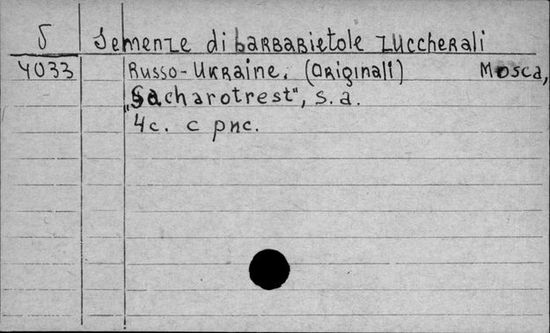 Б Semenze di barbabietole zuccherali
4033 Russo-Ukraine. (Originali) Mosca,
„Sacharotrest", s.a.
4c. с рис.